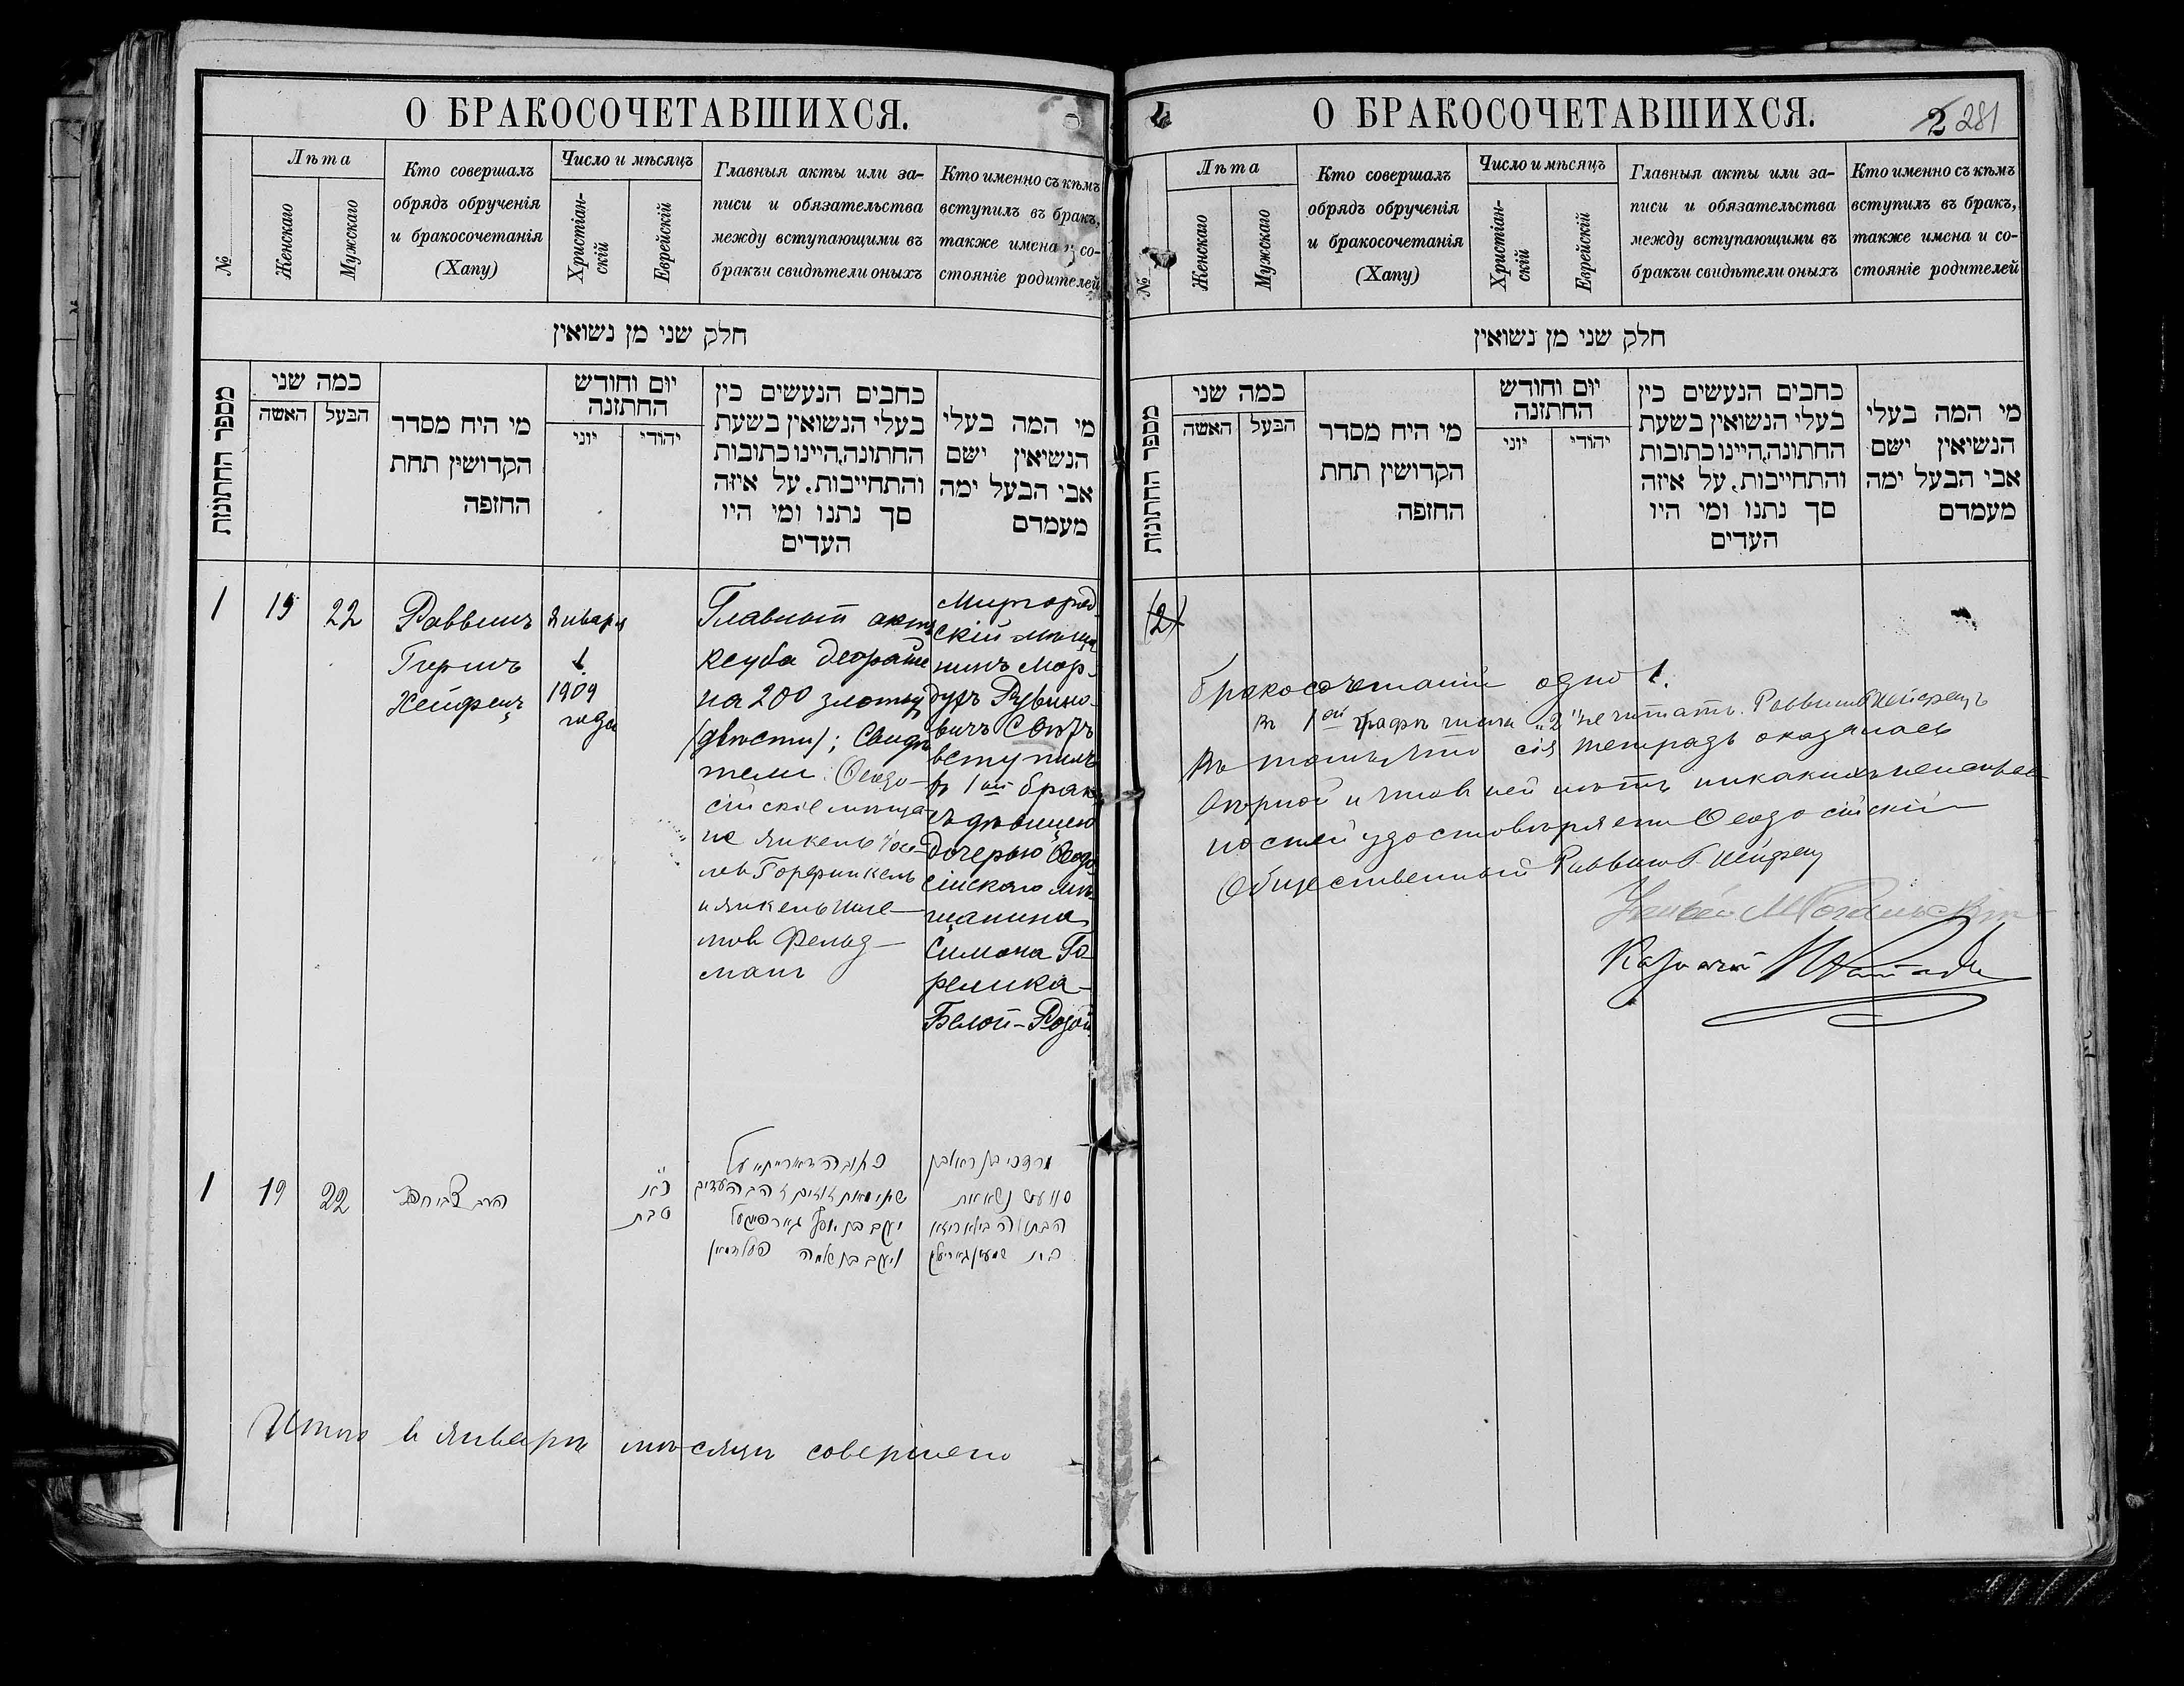 О БРАКОСОЧЕТАВШИХСЯ.
№
Лѣта
Женскаго
Мужскаго
Кто совершалъ
обрядъ обрученія
и бракосочетанія
(Хапу)
Число и мѣсяцъ
Христіан-
скій
Еврейскій
Главныя акты или за-
писи и обязательства
между вступающими въ
бракъи свидѣтели оныхъ
Кто именно съ кѣмъ
вступилъ въ бракъ,
также имена и со-
стояніе родителей
חלק שני מן נשואין
מספר החתונות
כמה שני
האשה
הבעל
מי היח מסדר
הקדושין תחת
החזפה
יום וחודש
החתזנה
יוני
יהודי
כחבים הנעשים כין
בעלי הנשואין בשעת
החתונה,היינו כתובות
והתחייבות, על איזה
סך נתנו ומי היו
העדים
מי המה בעלי
הנשיאין ישם
אבי הבעל ימה
מעמדם
1
19
22
Раввинъ
Гершъ
Хейфецъ
Января
1
1909
года
Главный актъ
Ксуба деорайше
на 200 злотыхъ
(двѣсти); Свидѣ
тели: Ѳеодо-
сійскіе мѣща
не Янкель Іосе
левъ Горфинкель
и Янкель Шле
мовъ Фельд-
манъ
Миргород
скій мѣща
нинъ Мор-
духъ Рувино-
вичъ Сбѣтъ
вступилъ
въ 1ый бракъ
съ дѣвицею
дочерью Ѳеодо
сійскаго мѣ-
щанина
Симона Го
релика-
Бейлой-Розой
1
19
22
הרב צבי חפץ
כ"א
טבת
כתובה דאורייתא על
שתי מאות זהובים והעדים
יעקב בן יוסף גארפינקעל
ויעקב בן שלמה פעלדמאן
מרדכי בן ראובן
הבתולה ביילא רייזא
בת שמעון גארעליק
Итого въ январѣ мѣсяцѣ совершено
О БРАКОСОЧЕТАВШИХСЯ.
2 281
№
Лѣта
Женскаго
Мужскаго
Кто совершалъ
обрядъ обрученія
и бракосочетанія
(Хапу)
Число и мѣсяцъ
Христіан-
скій
Еврейскій
Главныя акты или за-
писи и обязательства
между вступающими въ
бракъи свидѣтели оныхъ
Кто именно съ кѣмъ
вступилъ въ бракъ,
также имена и со-
стояніе родителей
חלק שני מן נשואין
מספר החתונות
כמה שני
האשה
הבעל
מי היח מסדר
הקדושין תחת
החזפה
יום וחודש
החתזנה
יוני
יהודי
כחבים הנעשים כין
בעלי הנשואין בשעת
החתונה,היינו כתובות
והתחייבות, על איזה
סך נתנו ומי היו
העדים
מי המה בעלי
הנשיאין ישם
אבי הבעל ימה
מעמדם
(2)
бракосочетаній одно 1.
Въ 1ой графѣ число "2" не читать. Раввинъ Г Хейфецъ
Въ томъ, что сія тетрадь оказалась
вѣрной и что въ ней нѣтъ никакихъ неисправ
ностей удостовѣряетъ Ѳеодосійскій
Общественный Раввинъ Г. Хейфец
Казначей